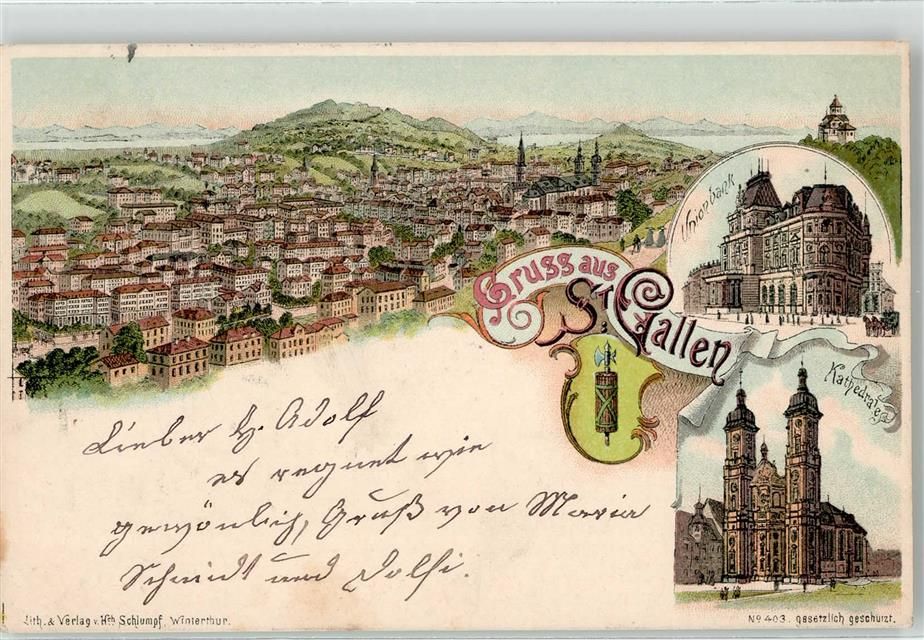 Gruss aus
St. Gallen
Unionbank
Kathedrale
Lieber H. Adolf
es regnet wie
gewönlich, Gruß von Maria
Schmidt und Dolfi.
Lith. & Verlag v. Hch Schlumpf, Winterthur.
No 403. gesetzlich geschützt.